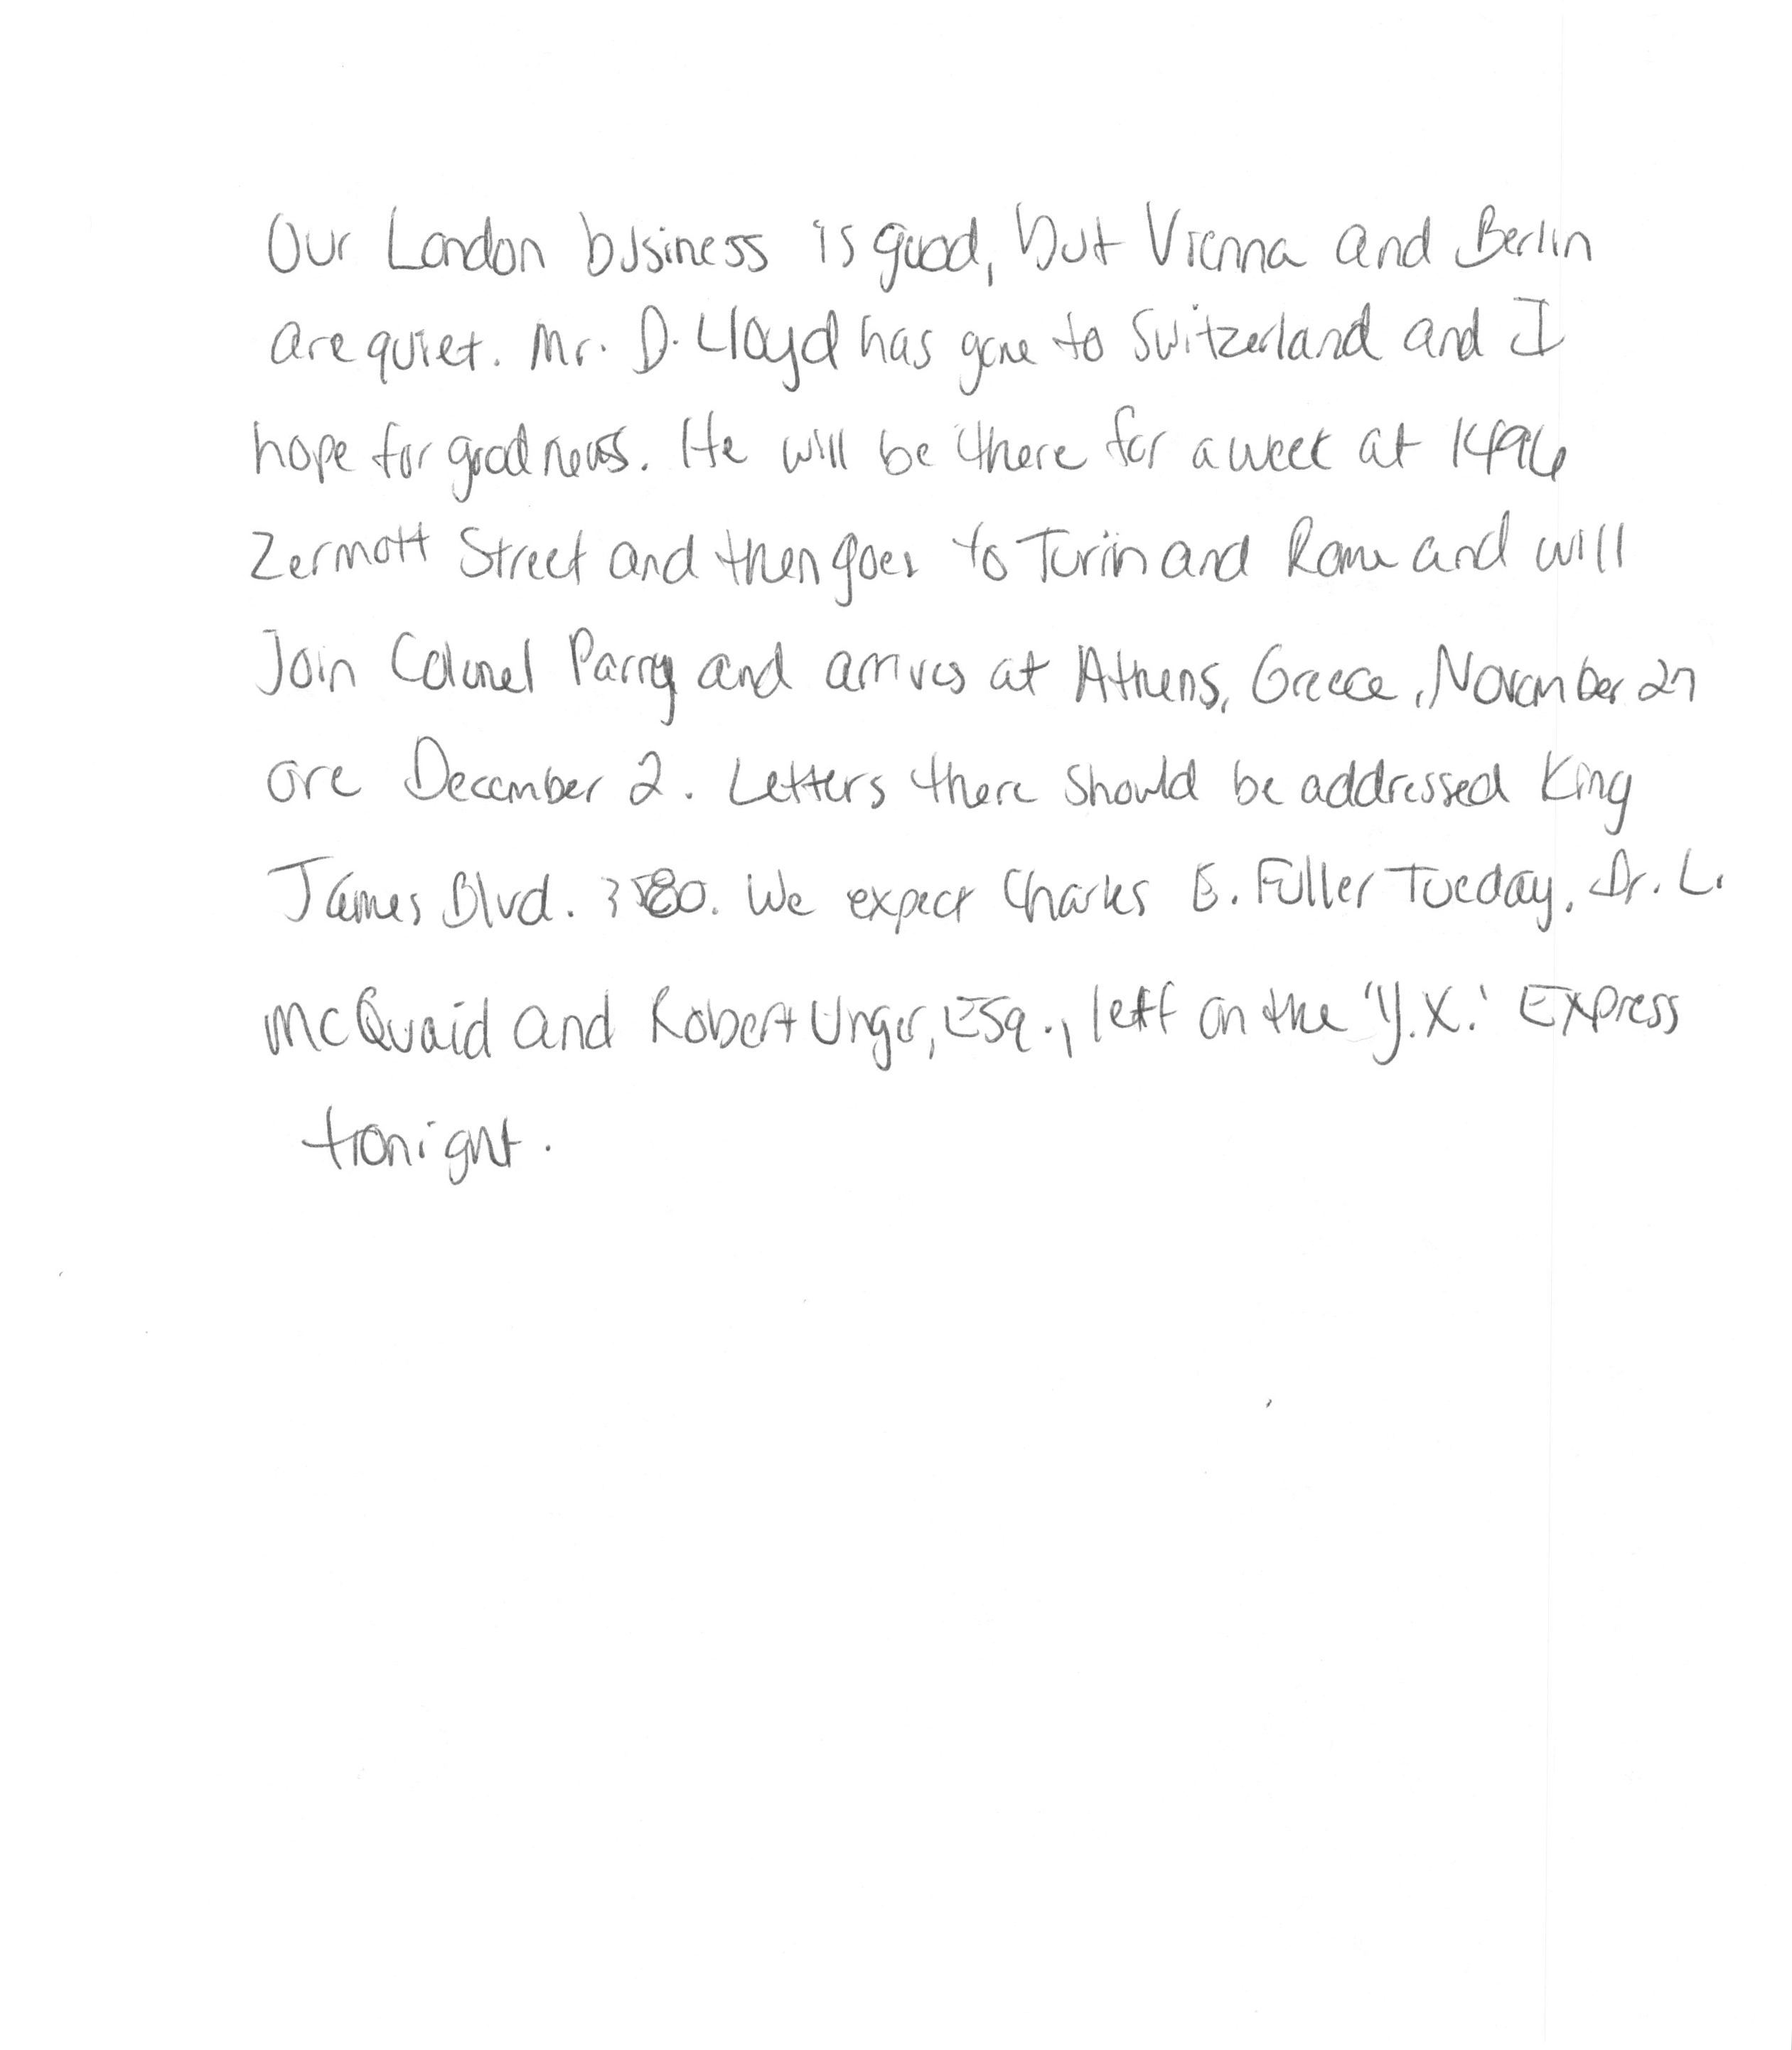 Our London business is good, but Vienna and Berlin
are quiet. Mr. D. Lloyd has gone to Switzerland and I
hope for good news. He will be there for a week at 1496
Zermott Street and then goes to Turin and Rome and will
Join Colonel Parry and arrives at Athens, Greece, November 27
ore December 2. Letters there Should be addressed King
James Blvd. 3580. We expect Charles E. Fuller Tueday. Dr. L.
McQuaid and Robert Unger, Esq., left on the 'Y.X.' Express
tonight.